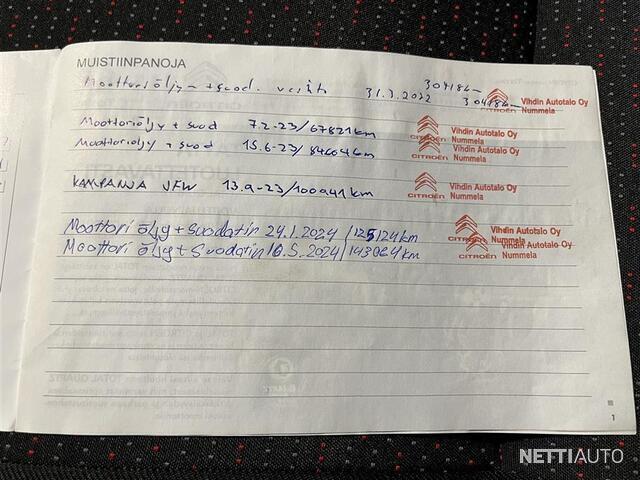 MUISTIINPANOJA
Moottoriöljy + suod. vaiht 31.3.2022
Vihdin Autotalo Oy
Nummela
Moottoriöljy + suod 7.2-23/67821km
CITROËN Vihdin Autotalo Oy
Nummela
Moottoriöljy + suod 15.6-23/
CITROËN Vihdin Autotalo Oy
Nummela
KAMPANJA JFW 13.9-23/100941km
CITROËN Vihdin Autotalo Oy
Nummela
Moottori öljy + Suodatin 24.1.2024 / 125124km
CITROËN Vihdin Autotalo Oy
Nummela
Moottori öljy + Suodatin 16.5.2024/143064km
CITROËN Vihdin Autotalo Oy
Nummela
1
NETTIAUTO